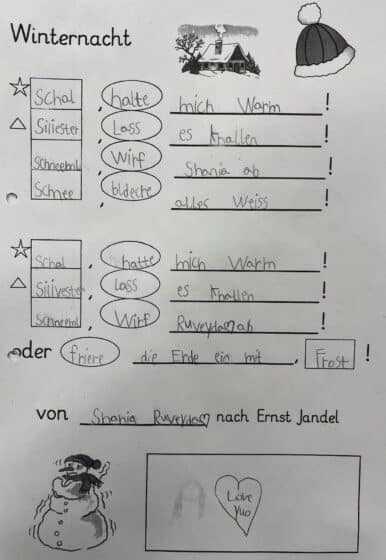 Winternacht
Schal , halte mich Warm !
Sillester , Lass es Knallen !
Schneeml , Wirf Shania ab !
Schnee , bldecke alles Weiss !
Schal , hatte mich Warm !
Silivester , Lass es Knallen !
Schneeml , Wirf Ruveyda ab !
oder friere die Erde ein mit , Frost !
von Shania Ruveyda nach Ernst Jandel
Love
yuo